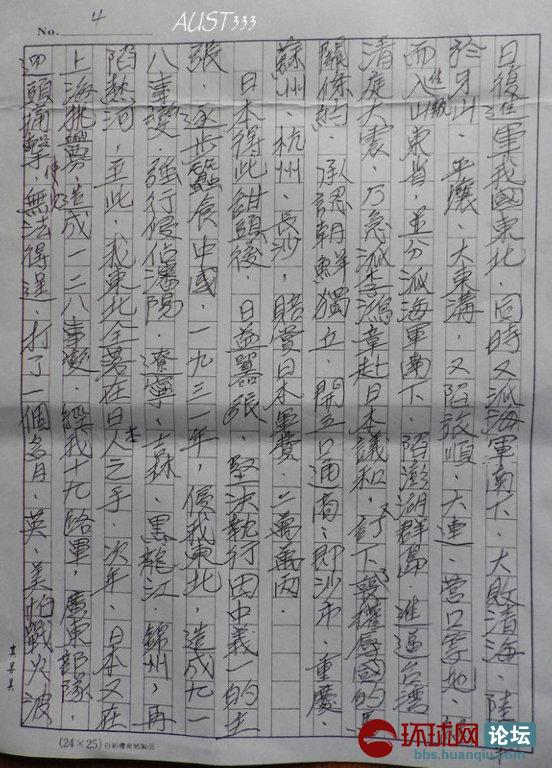 No. 4
AUST333
日復進軍我國東北，同時又派海軍南下，大敗清海、陸軍
於牙山、平壤、大東溝，又陷旅順、大連、營口等地，
而入山東省，並分派海軍南下，陷澎湖群島，進逼台灣
清庭大震，乃急派李鴻章赴日本議和，又訂下喪權辱國的馬
關條約，承認朝鮮獨立，開五口通商，即沙市、重慶、
蘇州、杭州、長沙，賠賞日本軍費二萬萬兩．
日本得此甜頭後，日益囂張，堅決執行田中義一的主
張，逐步蠶食中國，一九三一年，侵我東北，造成九一
八事變，強行侵佔瀋陽、遼寧、吉林、黑龍江、錦州，再
陷熱河，至此，我東北全落在日本人之手，次年，日本又在
上海挑釁，造成一二八事變，經我十九路軍，廣東部隊，
迎頭痛擊，使她無法得逞，打了一個多月，英、美怕戰火波
(24×25)
环球网 论坛
bbs.huanqiu.com